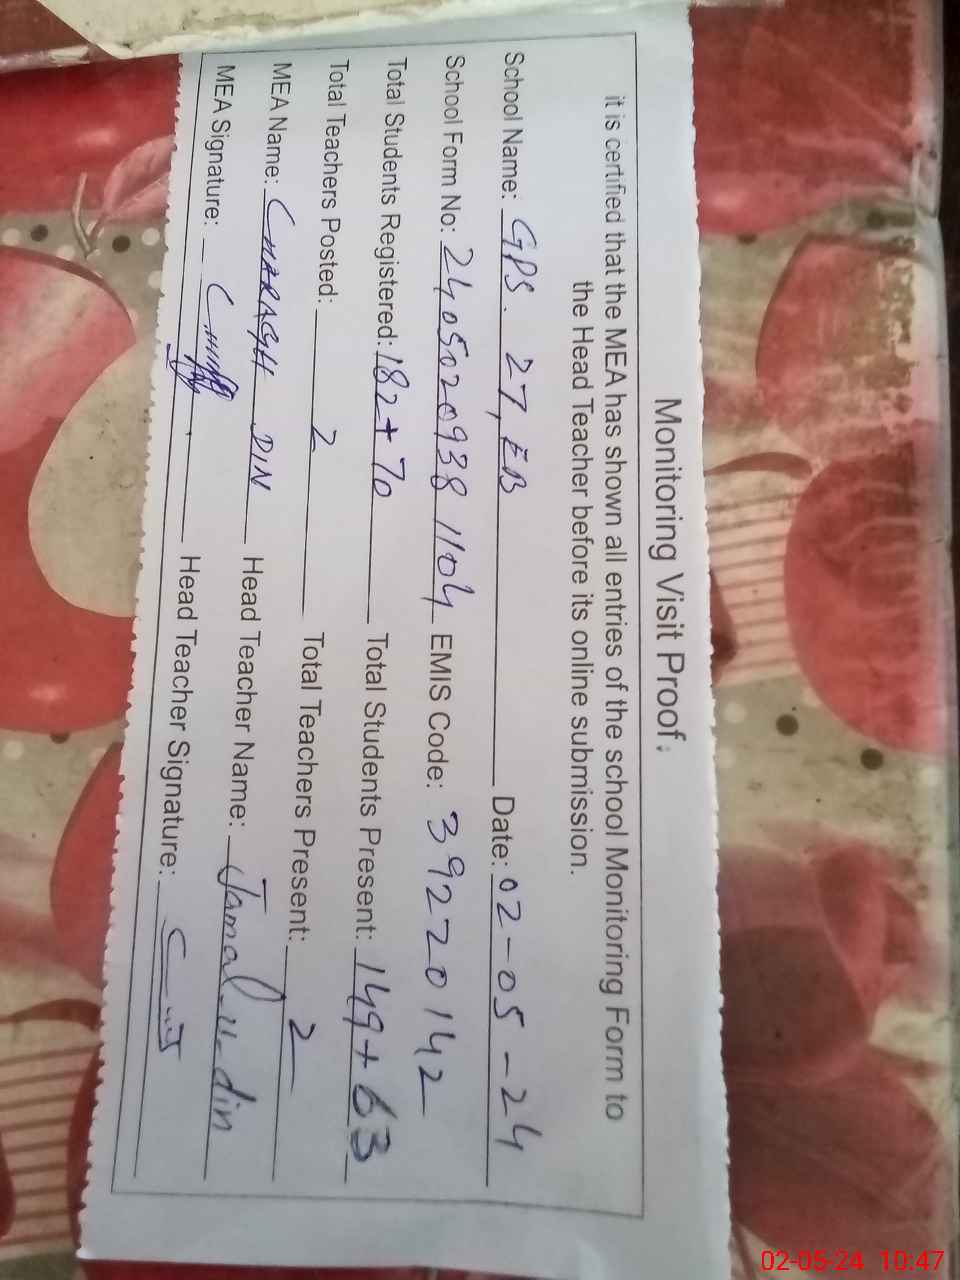 Monitoring Visit Proof:
it is certified that the MEA has shown all entries of the school Monitoring Form to
the Head Teacher before its online submission.
School Name: GPS. 27, EB Date: 02-05-24
School Form No: 2405020938 1104 EMIS Code: 39220142
Total Students Registered: 182+70 Total Students Present: 149+63
Total Teachers Posted: 2 Total Teachers Present: 2
MEA Name: CHARAGH DIN Head Teacher Name: Jamal-u-din
MEA Signature: Head Teacher Signature:
02-05-24 10:47